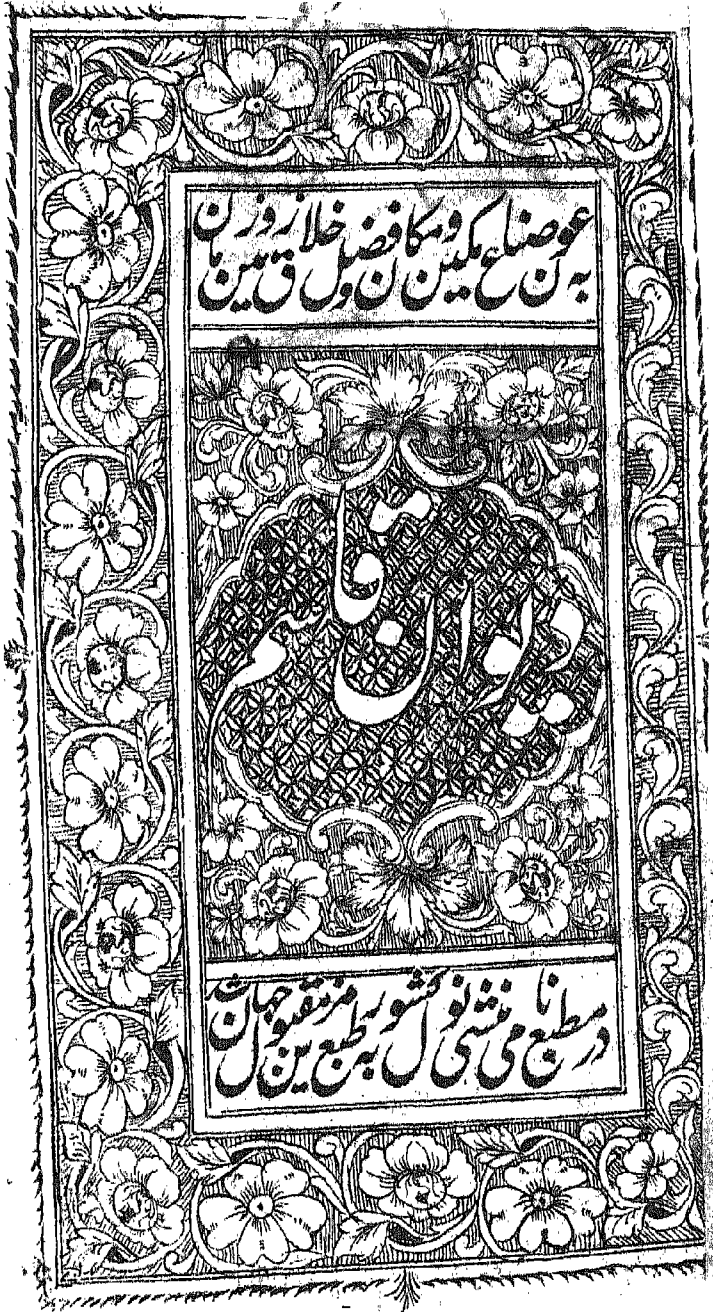 به عون صناع مکین و مکان و فضل خلاق زمین و زمان
دیوان قاسم
در مطبع نامی منشی نول کشور به طبع مزین مقبول جهان شد